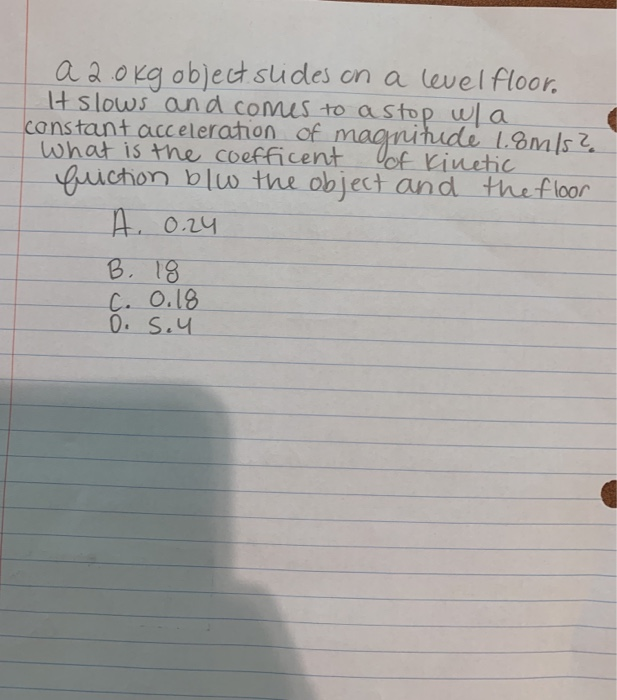 a 2.0kg object slides on a level floor.
It slows and comes to a stop w/a
constant acceleration of magnitude 1.8m/s².
What is the coefficent of kinetic
friction b/w the object and the floor
A. 0.24
B. 18
C. 0.18
D. 5.4